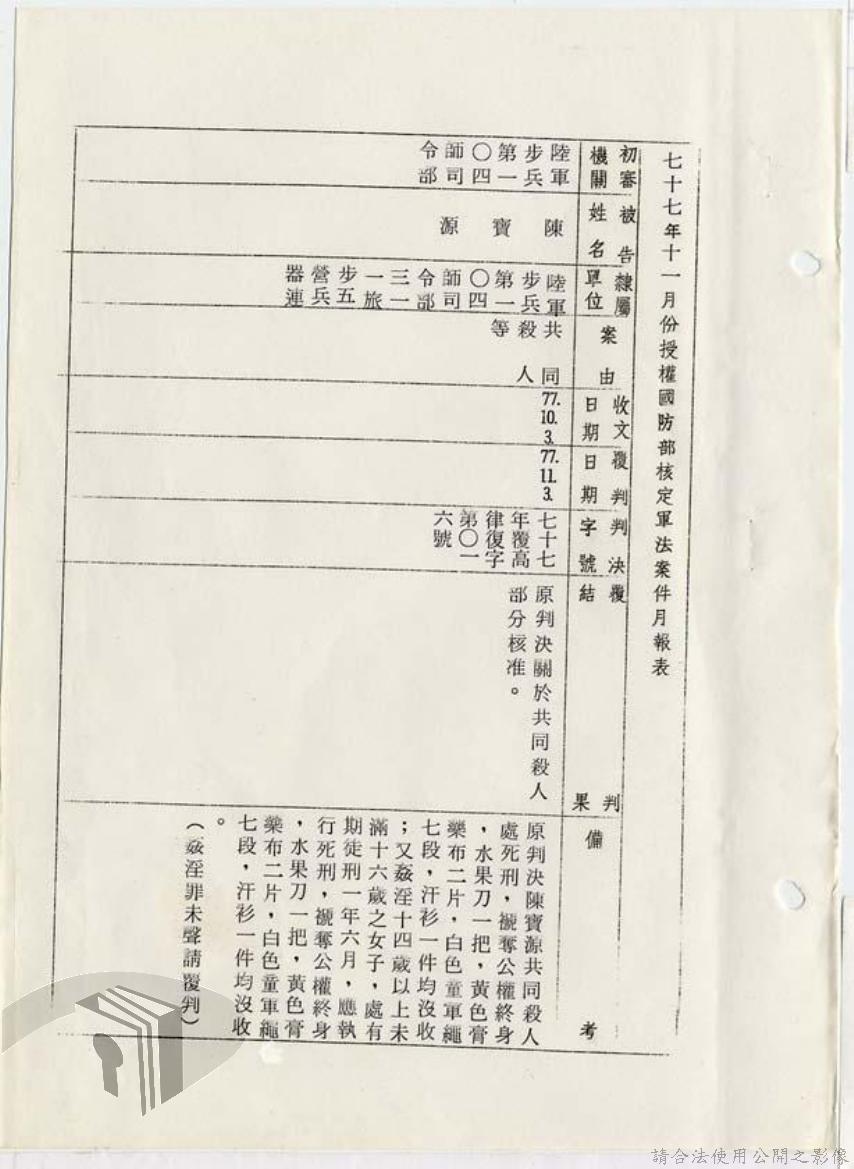 七十七年十一月份授權國防部核定軍法案件月報表
初審
機關
陸軍
步兵
第一
〇四
師司
令部
被告
姓名
陳寶源
隸屬
單位
陸軍
步兵
第一
〇四
師司
令部
三一
一旅
步五
營兵
器連
案由
共同
殺人
等
收文
日期
77.10.3.
覆判
日期
77.11.3.
判決
字號
七十七
年覆高
律復字
第〇一
六號
覆判
結果
原判決關於共同殺人
部分核准。
備考
原判決陳寶源共同殺人
處死刑,褫奪公權終身
,水果刀一把,黃色膏
藥布二片,白色童軍繩
七段,汗衫一件均沒收
;又姦淫十四歲以上未
滿十六歲之女子,處有
期徒刑一年六月,應執
行死刑,褫奪公權終身
,水果刀一把,黃色膏
藥布二片,白色童軍繩
七段,汗衫一件均沒收
。
(姦淫罪未聲請覆判)
請合法使用公開之影像